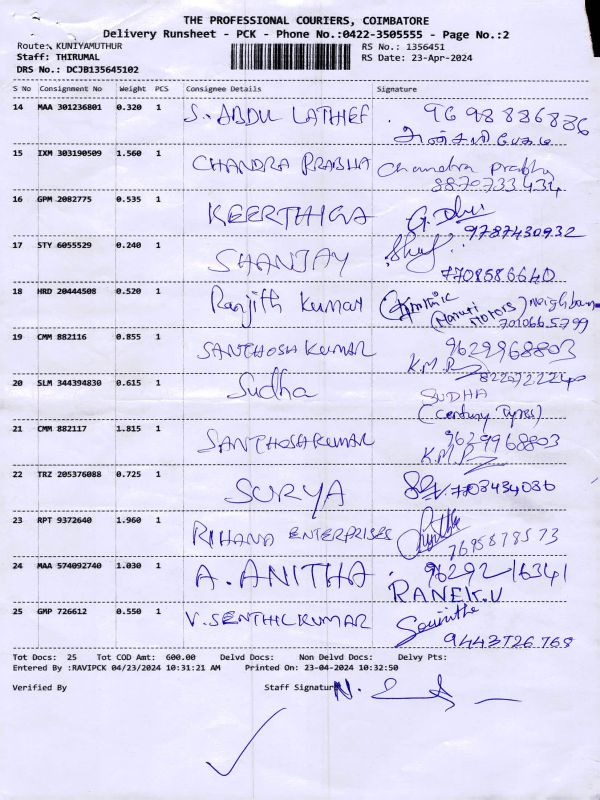 THE PROFESSIONAL COURIERS, COIMBATORE
Delivery Runsheet - PCK - Phone No.:0422-3505555 - Page No.:2
Route: KUNIYAMUTHUR
RS No.: 1356451
Staff: THIRUMAL
RS Date: 23-Apr-2024
DRS No.: DCJB135645102
S No Consignment No Weight PCS Consignee Details Signature
14 MAA 301236801 0.320 1 S. ABDUL LATHIEF . 9698836836
15 IXM 303190509 1.560 1 CHANDRA PRABHA Chandra Prabha
8870733434
16 GPM 2082775 0.535 1 KEERTHIGA
9787430932
17 STY 6055529 0.240 1 SHANJAY
7708586640
18 HRD 20444508 0.520 1 Ranjith Kumar
(Maruti Motors)
7010665799
19 CMM 882116 0.855 1 SANTHOSH KUMAR 9629968803
K.M.R
20 SLM 344394830 0.615 1 Sudha SUDHA
(Century Tyres)
21 CMM 882117 1.815 1 SANTHOSHKUMAR 9629968803
K.M.R
22 TRZ 205376088 0.725 1 SURYA
23 RPT 9372640 1.960 1 RIHANA ENTERPRISES
7695878573
24 MAA 574092740 1.030 1 A. ANITHA . 9629216341
RANEK.V
25 GMP 726612 0.550 1 V. SENTHILKUMAR
9443726768
Tot Docs: 25 Tot COD Amt: 600.00 Delvd Docs: Non Delvd Docs: Delvy Pts:
Entered By :RAVIPCK 04/23/2024 10:31:21 AM Printed On: 23-04-2024 10:32:50
Verified By Staff Signature N.